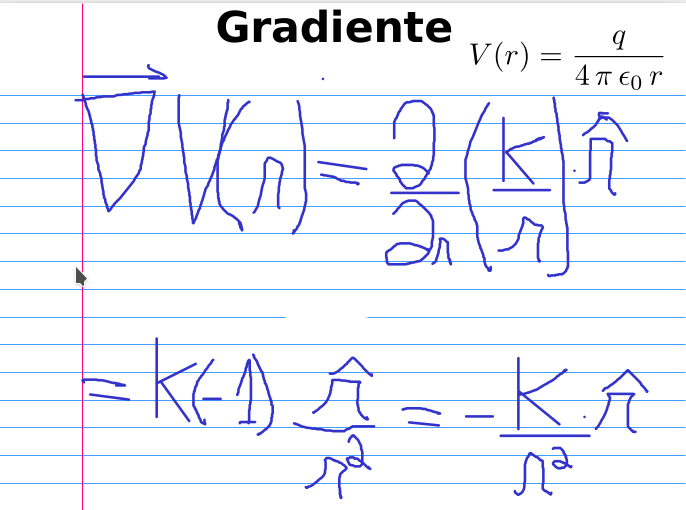 Gradiente
V(r) = q / (4 π ϵ₀ r)
∇⃗ V(r) = ∂/∂r (K/r) · r̂
= K(-1) r̂/r² = - K/r² · r̂